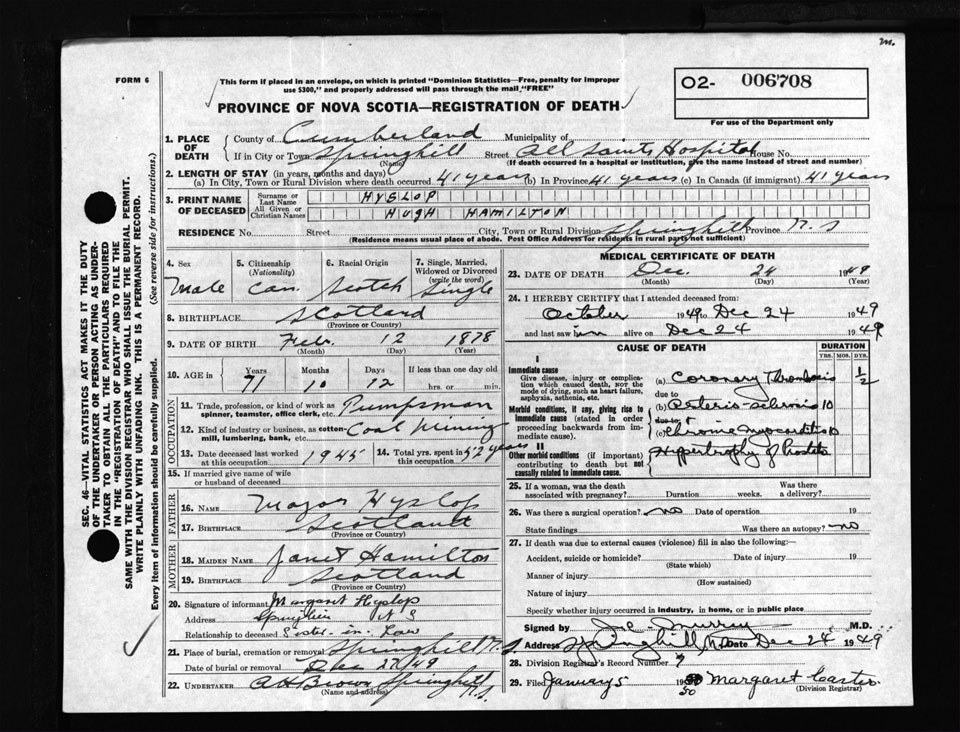 m.
FORM 6
This form if placed in an envelope, on which is printed "Dominion Statistics—Free, penalty for improper
use $300," and properly addressed will pass through the mail "FREE"
PROVINCE OF NOVA SCOTIA—REGISTRATION OF DEATH
02- 006708
For use of the Department only
SEC. 46—VITAL STATISTICS ACT MAKES IT THE DUTY
OF THE UNDERTAKER OR PERSON ACTING AS UNDER-
TAKER TO OBTAIN ALL THE PARTICULARS REQUIRED
IN THE "REGISTRATION OF DEATH" AND TO FILE THE
SAME WITH THE DIVISION REGISTRAR WHO SHALL ISSUE THE BURIAL PERMIT.
WRITE PLAINLY WITH UNFADING INK. THIS IS A PERMANENT RECORD.
Every item of information should be carefully supplied. (See reverse side for instructions.)
1. PLACE OF DEATH
County of Cumberland Municipality of
If in City or Town Springhill Street All Saints Hospital House No.
(Name) (If death occurred in a hospital or institution, give the name instead of street and number)
2. LENGTH OF STAY (in years, months and days)
(a) In City, Town or Rural Division where death occurred 41 years (b) In Province 41 years (c) In Canada (if immigrant) 41 years
3. PRINT NAME OF DECEASED
Surname or Last Name HYSLOP
All Given or Christian Names HUGH HAMILTON
RESIDENCE No. Street City, Town or Rural Division Springhill Province N.S
(Residence means usual place of abode. Post Office Address for residents in rural parts not sufficient)
4. Sex Male
5. Citizenship (Nationality) Can.
6. Racial Origin Scotch
7. Single, Married, Widowed or Divorced (write the word) Single
8. BIRTHPLACE Scotland
(Province or Country)
9. DATE OF BIRTH Feb. 12 1878
(Month) (Day) (Year)
10. AGE in Years 71 Months 10 Days 12 If less than one day old hrs. or min.
OCCUPATION
11. Trade, profession, or kind of work as spinner, teamster, office clerk, etc. Pumpsman
12. Kind of industry or business, as cotton-mill, lumbering, bank, etc. Coal Mining
13. Date deceased last worked at this occupation 1945
14. Total yrs. spent in this occupation 52 years
15. If married give name of wife or husband of deceased
FATHER
16. NAME Hyslop
17. BIRTHPLACE Scotland
(Province or Country)
MOTHER
18. MAIDEN NAME Janet Hamilton
19. BIRTHPLACE Scotland
(Province or Country)
20. Signature of informant Margaret Hyslop
Address N S
Relationship to deceased Sister-in-Law
21. Place of burial, cremation or removal Springhill N.S
Date of burial or removal Dec 27/49
22. UNDERTAKER A H Brown Springhill N.S
(Name and address)
MEDICAL CERTIFICATE OF DEATH
23. DATE OF DEATH Dec. 24 1949
(Month) (Day) (Year)
24. I HEREBY CERTIFY that I attended deceased from:
October 1949 to Dec 24 1949
and last saw him alive on Dec 24 1949
CAUSE OF DEATH
DURATION
YRS. MOS. DYS.
I
Immediate cause
Give disease, injury or complication which caused death, NOT the mode of dying, such as heart failure, asphyxia, asthenia, etc.
(a) Coronary Thrombosis 1/2
due to
Morbid conditions, if any, giving rise to immediate cause (stated in order proceeding backwards from immediate cause).
(b) Arterio-sclerosis 10
due to
(c) Chronic Myocarditis 10
II
Other morbid conditions (if important) contributing to death but not causally related to immediate cause.
Hypertrophy of Prostate
25. If a woman, was the death associated with pregnancy? Duration weeks. Was there a delivery?
26. Was there a surgical operation? no Date of operation 19
State findings Was there an autopsy? no
27. If death was due to external causes (violence) fill in also the following:—
Accident, suicide or homicide? Date of injury 19
(State which)
Manner of injury
(How sustained)
Nature of injury
Specify whether injury occurred in industry, in home, or in public place
Signed by Murray M.D.
Address Springhill, N.S Date Dec 24 1949
28. Division Registrar's Record Number
29. Filed January 5 1950 Margaret Carter
(Division Registrar)